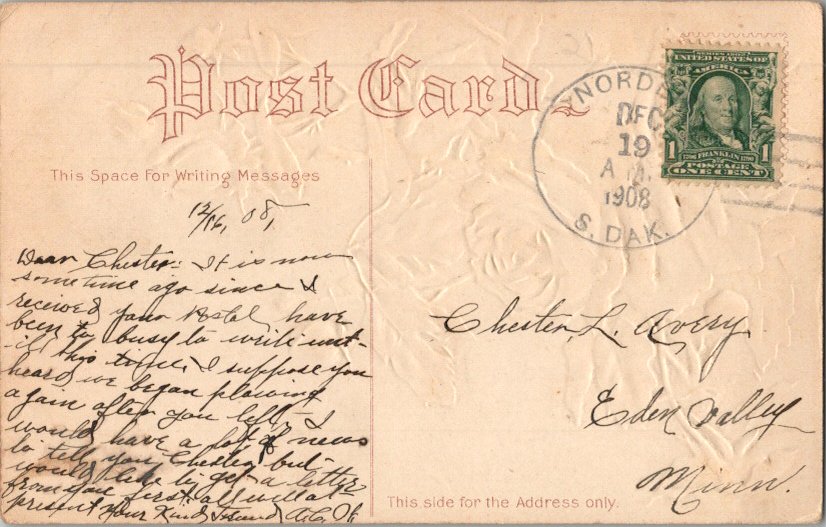 Post Card
This Space For Writing Messages
12/16, 08,
Dear Chester: It is now
some time ago since I
received your Postal, have
been to busy to write unt-
il this time, I suppose you
heard we began plowing
again after you left, I
would have a lot of news
to tell you Chester, but
would like to get a letter
from you first. all well at
present Your Kind A.C.
NORDE
DEC
19
A.M.
1908
S. DAK.
SERIES 1902
UNITED STATES OF
AMERICA
1 1706 FRANKLIN 1790 1
POSTAGE
ONE CENT
Chester, L. Avery
Eden Valley
Minn.
This side for the Address only.